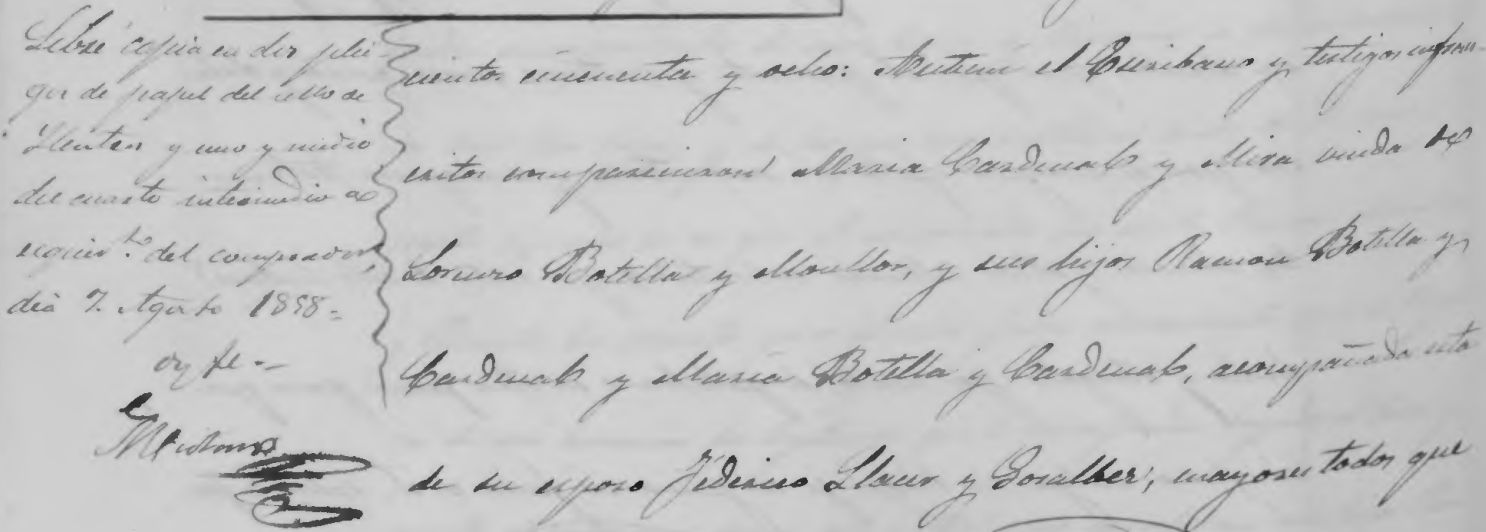 Libré copia en dos plie-
gos de papel del sello de
Ilustres y uno y medio
del cuarto intermedio a
requirto. del comprador,
dia 7. Agosto 1858=
oy fe.=
cientos cincuenta y ocho: Ante mi el Escribano y testigos infras-
critos comparecieron Maria Cardenal y Mira viuda de
Lorenzo Botella y Moullor, y sus hijos Ramon Botella y
Cardenal y Maria Botella y Cardenal, acompañada esta
de su esposo Federico Llacer y Gosalbez, mayores todos que